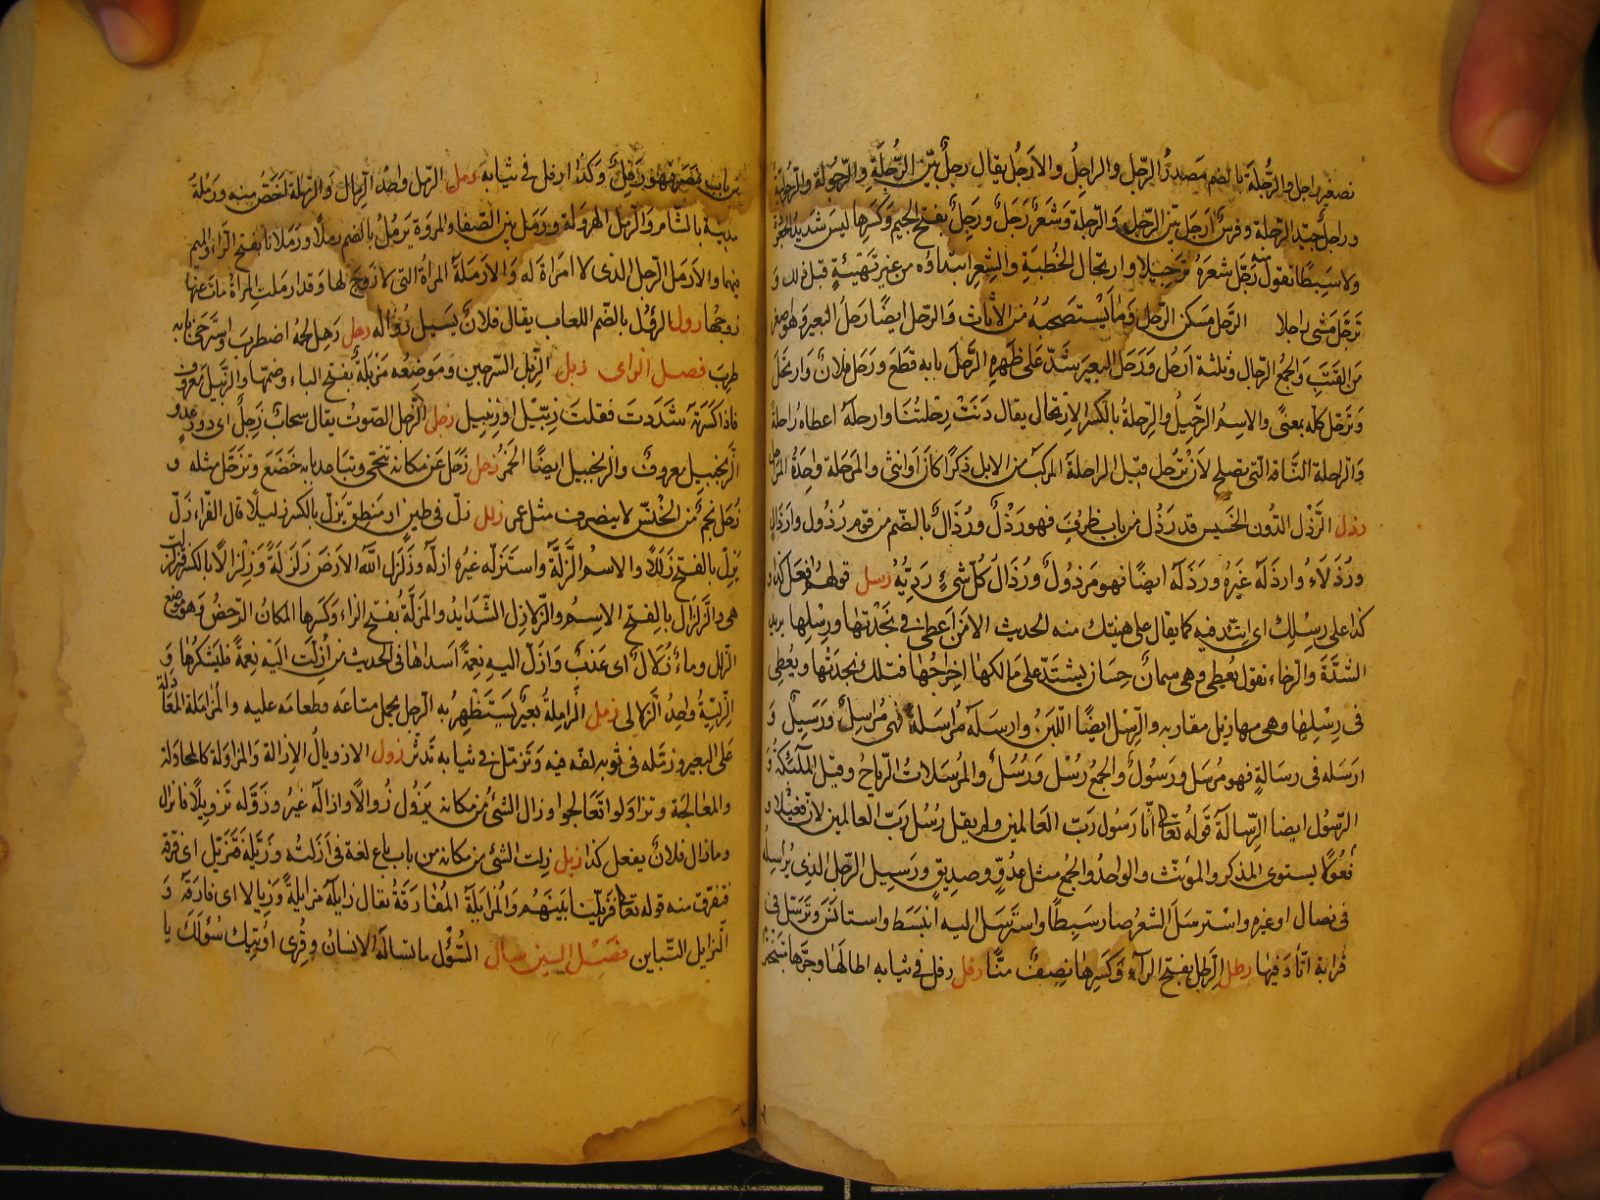 تصغير راجل والرُّجلَة بالضم مَصدرُ الرّجل والراجِلُ والارجُل يقال رجلٌ بيّن الرُّجلَةِ والرّجولَة والرّجليّة
وراجلٌ جيّد الرّجلة وفرسٌ اَرجَل بيّن الرّجَل والرّجلة وَشَعرٌ رَجَلٌ ورَجِلٌ بفتح الجيم وَكسرِها ليسَ شديدَ الجعُودَة
ولا سَبِطًا تقول منه رَجَّلَ شعرَهُ ترجيلا وارتجال الخُطبةِ والشِعر ابتداؤه من غير تَهيئةٍ قبل ذلك وَ
تَرَجّلَ مَشى راجلا الرَّحل مَسكن الرّجل وَمَا يَسْتصحبُه من الاثاث والرّحل ايضًا رَحلُ البعير وهو اصغر
مَن القتَبِ وَالجمعُ الرّحال وثلثة اَرحُل وَرَحَل البعيرَ شَدّ عَلى ظَهرِه الرّحلَ بابه قَطَع وَرَحَل فلانٌ وَارتحلَ
وَتَرحّل كلّه بمعنًى والاسِمُ الرّحِيلُ والرِّحلةُ بالكسر الارتحال يقال دَنَتْ رِحْلتُنَا وارحلهُ اعطاه راحلةً
وَالراحلة النّاقه التى تصلح لاَنْ تُرحل وقيل الراحلة المركبُ من الابل ذكَرًا كانَ اَو انثى والمَرحَلة واحِدَةُ المراحل
رذل الرَّذْل الدّون الخَسيس قد رَذُل من باب ظرُفَ فهو رَذْلٌ ورُذَالٌ بالضّم من قومٍ رُذُول وارذالٍ
ورُذَلاءُ وارذلَه غيَرهُ ورَذَله ايضًا فهو مَرذولٌ ورُذَال كُلّ شىءٍ رَديّهُ رسل قولهُم افعل كذا و
كذا على رِسْلِك اى اتّئد فيه كما يقال على هينتك منه الحديث الا مَن اَعطى فى نَجْدتها ورِسْلِها يريد
الشدَّة والرخاء تقول يُعطِى وهى سِمانٌ حِسَانٌ يشتَدّ على مَالكها اِخراجُها فتلك نجدَتها ويُعطِى
فى رِسْلِها وهى مهازيل مقاربه والرِّسْل ايضًا اللّبَنُ وارسَلَه مُراسلَةً فهو مُراسِلٌ وَرَسِيلٌ وَ
ارسَله فى رسَالةٍ فهو مُرسَل ورسُولٌ والجمعُ رُسْل وَرُسُلٌ والمُرسَلاتُ الرّياحُ وقيل الملَئكةُ وَ
الرسُول ايضا الرِسالةُ قَولهُ تعالى انّا رَسول رَبّ العَالمين ولم يقل رُسُل رَبّ العالمين لانّ فَعيلا و
فَعُولا يستوى المذكر والمونث والواحدُ والجمع مثل عدُوٍّ وصديقٍ ورَسِيل الرّجل الذِى يُراسِلُه
فى نضال او غيره واسْترسَلَ الشعرُ صار سَبِطًا واسترسَلَ اليه اَنبسَط واستانَسَ وترَسّل فى
قراءَة اتّأدَ فيها رطل الرّطل بفتح الرّاء وَكسرِها نِصفُ مَنًّا رفل رفل فى ثيابه اطالَها وجرّها متبختِر
من باب نَصَر فهو رَفِلٌ وَكذا ارفل فى ثيابه رمل الرّمل واحدُ الرّمال وَالرّملة اَخَصّ منه ورَملةُ
مدينة بالشّام وَالرّمل الهروَلة ورَمَل بين الصّفا والمروَة يَرمُلُ بالضم رملًا ورَمَلانا بفتح الرّاء والميم
فيهما والاَرمَل الرّجل الذى لا امرَاة لَه وَالارمَلَة المراَةُ التى لا زَوجَ لها وَقد ارمَلتِ المراَةُ مات عنها
زوجُها رول الرُّؤَال بالضّم اللعاب يقال فلانٌ يَسيل رُوَاله رهل رَهِل لحمُه اضطربَ واسترخى بابه
طرِبَ فصل الزاى زبل الزّبل السّرجين وَمَوضِعُه مَزبَلةٌ بفتح الباء وضمّها والزّبيل مَعروفٌ
فاذا كسَرتَه شَدَدتَ فقلتَ زِبّيْل اوْ زِنبيل زجل الزّجل الصّوتُ يقال سحابٌ زَجِلٌ اى ذو رَعدٍ و
الزّنجبيل معروفٌ والزنجبيل ايضًا الخَمرُ زحل زَحَل عَن مكانه تنحّى وتباعد بابه خَضَعَ وتزحّل مثله و
زُحَل نجمٌ من الخُنّس لا ينصرف مثل عمر زلل زلّ فى طينٍ او مَنطِقٍ يَزِلّ بالكسر زليلًا قال الفرّاء زَلّ
يَزِلّ بالفتح زَلَلًا والاسمُ الزَلّة واستَزلّه غيرُه ازلّه وزَلزَل اللهُ الاَرضَ زَلزَلَةً وَزِلزالًا بالكسر فتزلزلت
هى والزَّلزَال بالفتح الاِسمُ والزّلازِل الشدَايدُ والمَزَلّة بفتح الزاء وَكسرها المكانُ الدّحضُ وَهو مَوضع
الزلل وماءٌ زُلالٌ اى عَذبٌ وَازلّ اليه نِعمَةً اَسداها فى الحديث من اُزلّت اليَه نِعمةً فليشكرُها وَ
الزِّلّيّة واحِدُ الزَّلالى زمل الزّامِلةُ بعيرٌ يَسْتَظهِرُ به الرّجل يحمِل متاعَه وطعامَه عليه والمُزامَلة المعَادَلة
عَلى البعير وزمّله فى ثوبه لفّه فيه وَتزمّل فى ثيابه تَدثّرَ زول الازديالُ الاِزالة والمزاوَلة كالمحاوَلة
والمعالجَة وتزاوَلوا تعَالجوا وزال الشىُ من مكانه يَزُول زُوالًا وازالَه غيرُه وزوّله تَزويلًا فانزال
وما زال فلانٌ يفعل كذا زيل زِلت الشىَ من مكانه من باب باع لغة فى اَزلتُه وَزيّله فَتزيّل اى فرّقه
فتفرّق منه قوله تعالى فَزيّلنا بَينَهُم وَالمُزايَلة المُفارَقةُ تقال زايَله مزايلةً وزيالا اى فارقه وَ
التزايل التّباين فصْل السين سأل السُّؤْل ما يَسالُه الانسانُ وقُرِى اُوتيتَ سُؤلَكَ يا